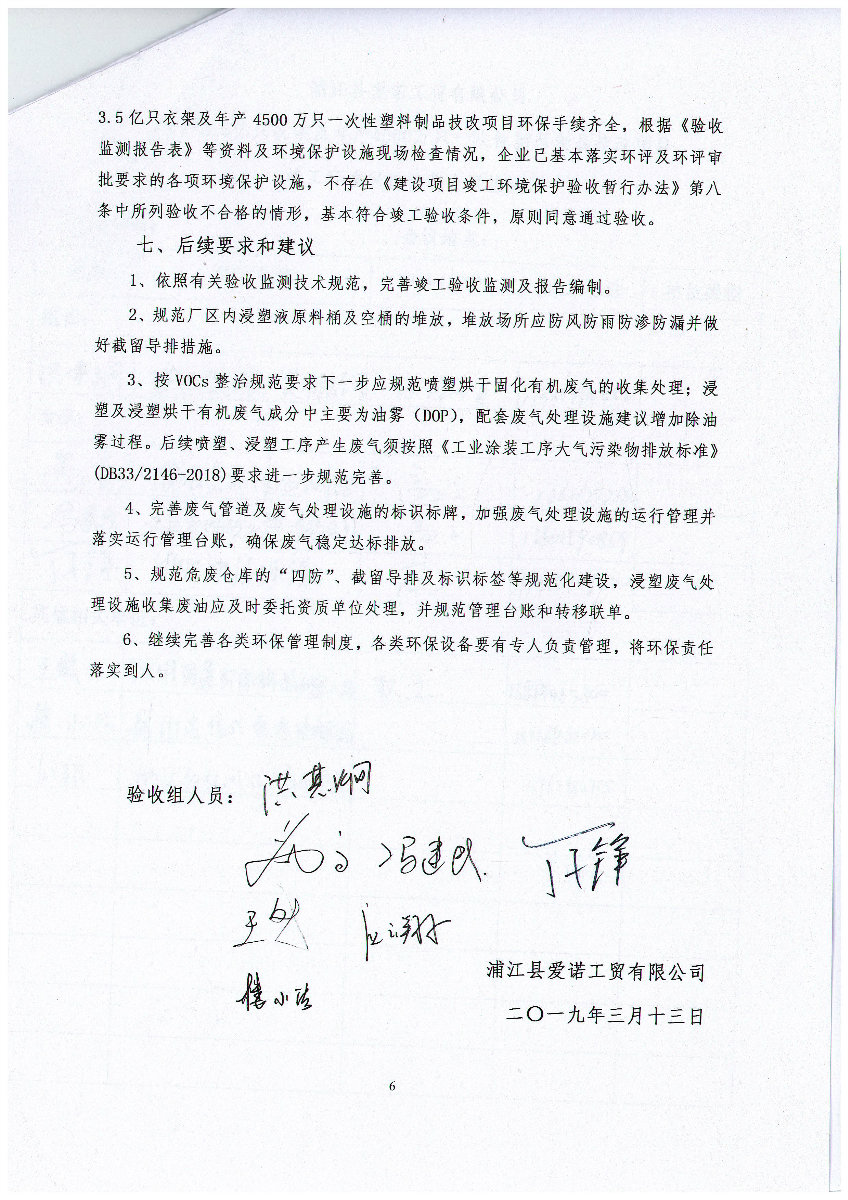 3.5亿只衣架及年产 4500 万只一次性塑料制品技改项目环保手续齐全，根据《验收
监测报告表》等资料及环境保护设施现场检查情况，企业已基本落实环评及环评审
批要求的各项环境保护设施，不存在《建设项目竣工环境保护验收暂行办法》第八
条中所列验收不合格的情形，基本符合竣工验收条件，原则同意通过验收。
七、后续要求和建议
1、依照有关验收监测技术规范，完善竣工验收监测及报告编制。
2、规范厂区内浸塑液原料桶及空桶的堆放，堆放场所应防风防雨防渗防漏并做
好截留导排措施。
3、按 VOCs 整治规范要求下一步应规范喷塑烘干固化有机废气的收集处理；浸
塑及浸塑烘干有机废气成分中主要为油雾（DOP），配套废气处理设施建议增加除油
雾过程。后续喷塑、浸塑工序产生废气须按照《工业涂装工序大气污染物排放标准》
(DB33/2146-2018)要求进一步规范完善。
4、完善废气管道及废气处理设施的标识标牌，加强废气处理设施的运行管理并
落实运行管理台账，确保废气稳定达标排放。
5、规范危废仓库的“四防”、截留导排及标识标签等规范化建设，浸塑废气处
理设施收集废油应及时委托资质单位处理，并规范管理台账和转移联单。
6、继续完善各类环保管理制度，各类环保设备要有专人负责管理，将环保责任
落实到人。
验收组人员：
冯建
浦江县爱诺工贸有限公司
二〇一九年三月十三日
6